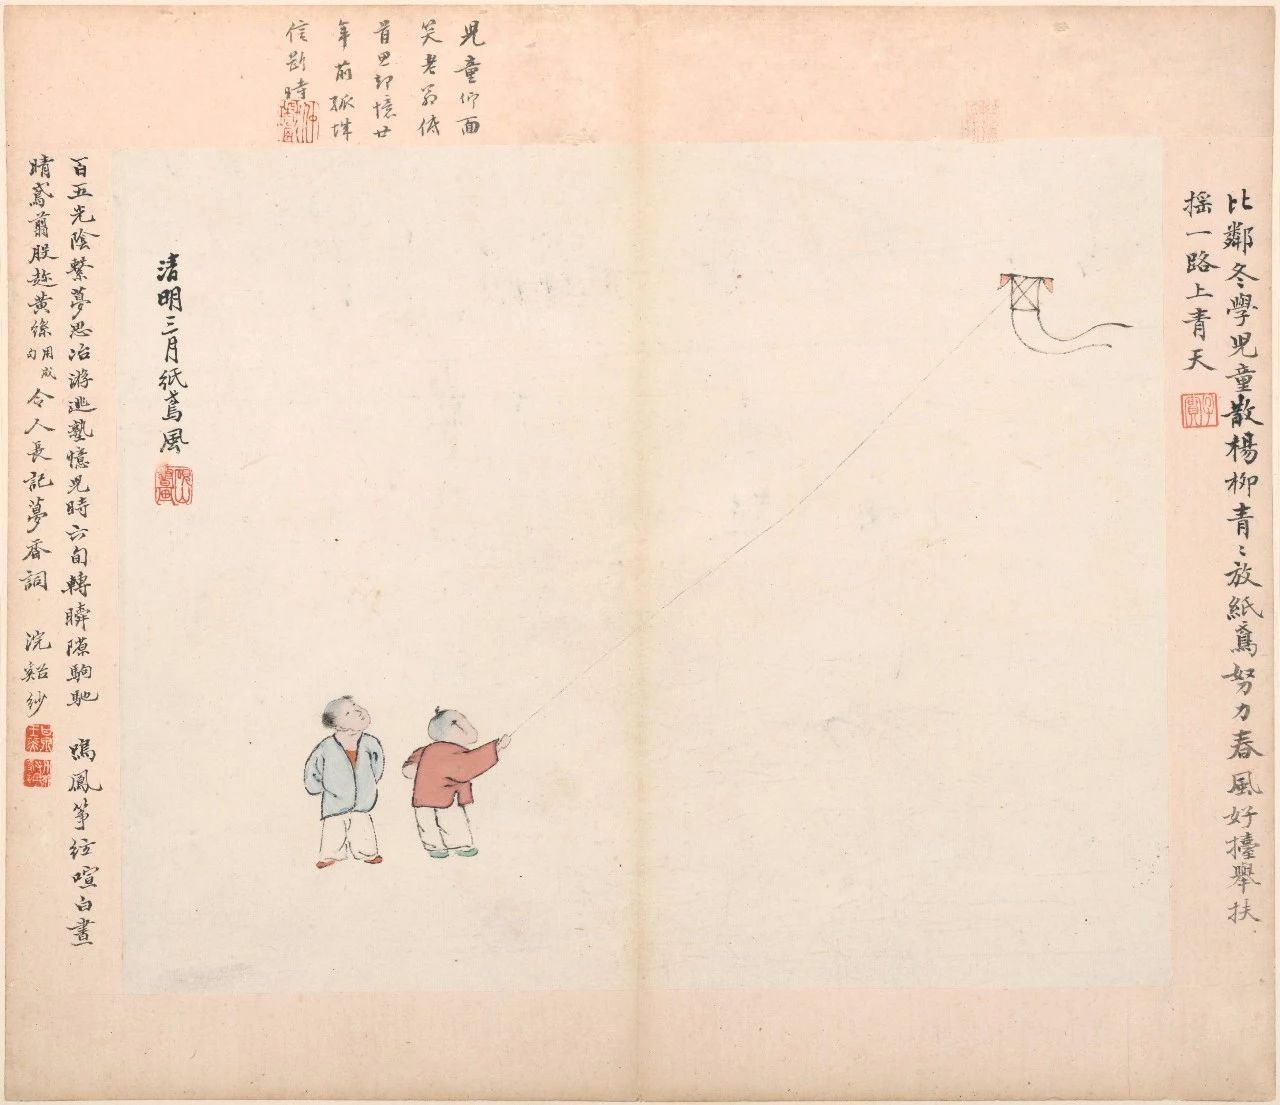 比鄰冬學兒童散楊柳青〻放紙鳶努力春風好擡舉扶
搖一路上青天
兒童仰面
笑老翁低
首思却憶廿
年前孤
信斷時
清明三月紙鳶風
百五光陰繫夢思冶游逃塾憶兒時六旬轉瞬隙駒馳 鳴鳳箏絃喧白晝
晴鳶翦股趂黃絲用成句令人長記夢香詞 浣谿紗